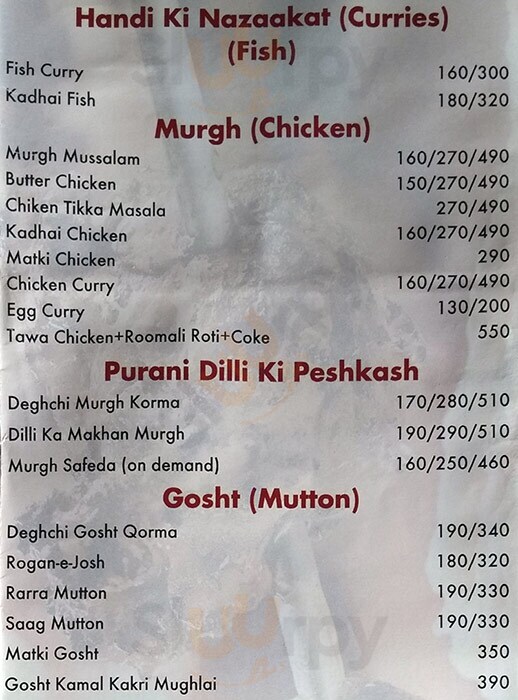 Handi Ki Nazaakat (Curries)
(Fish)
Fish Curry 160/300
Kadhai Fish 180/320
Murgh (Chicken)
Murgh Mussalam 160/270/490
Butter Chicken 150/270/490
Chiken Tikka Masala 270/490
Kadhai Chicken 160/270/490
Matki Chicken 290
Chicken Curry 160/270/490
Egg Curry 130/200
Tawa Chicken+Roomali Roti+Coke 550
Purani Dilli Ki Peshkash
Deghchi Murgh Korma 170/280/510
Dilli Ka Makhan Murgh 190/290/510
Murgh Safeda (on demand) 160/250/460
Gosht (Mutton)
Deghchi Gosht Qorma 190/340
Rogan-e-Josh 180/320
Rarra Mutton 190/330
Saag Mutton 190/330
Matki Gosht 350
Gosht Kamal Kakri Mughlai 390